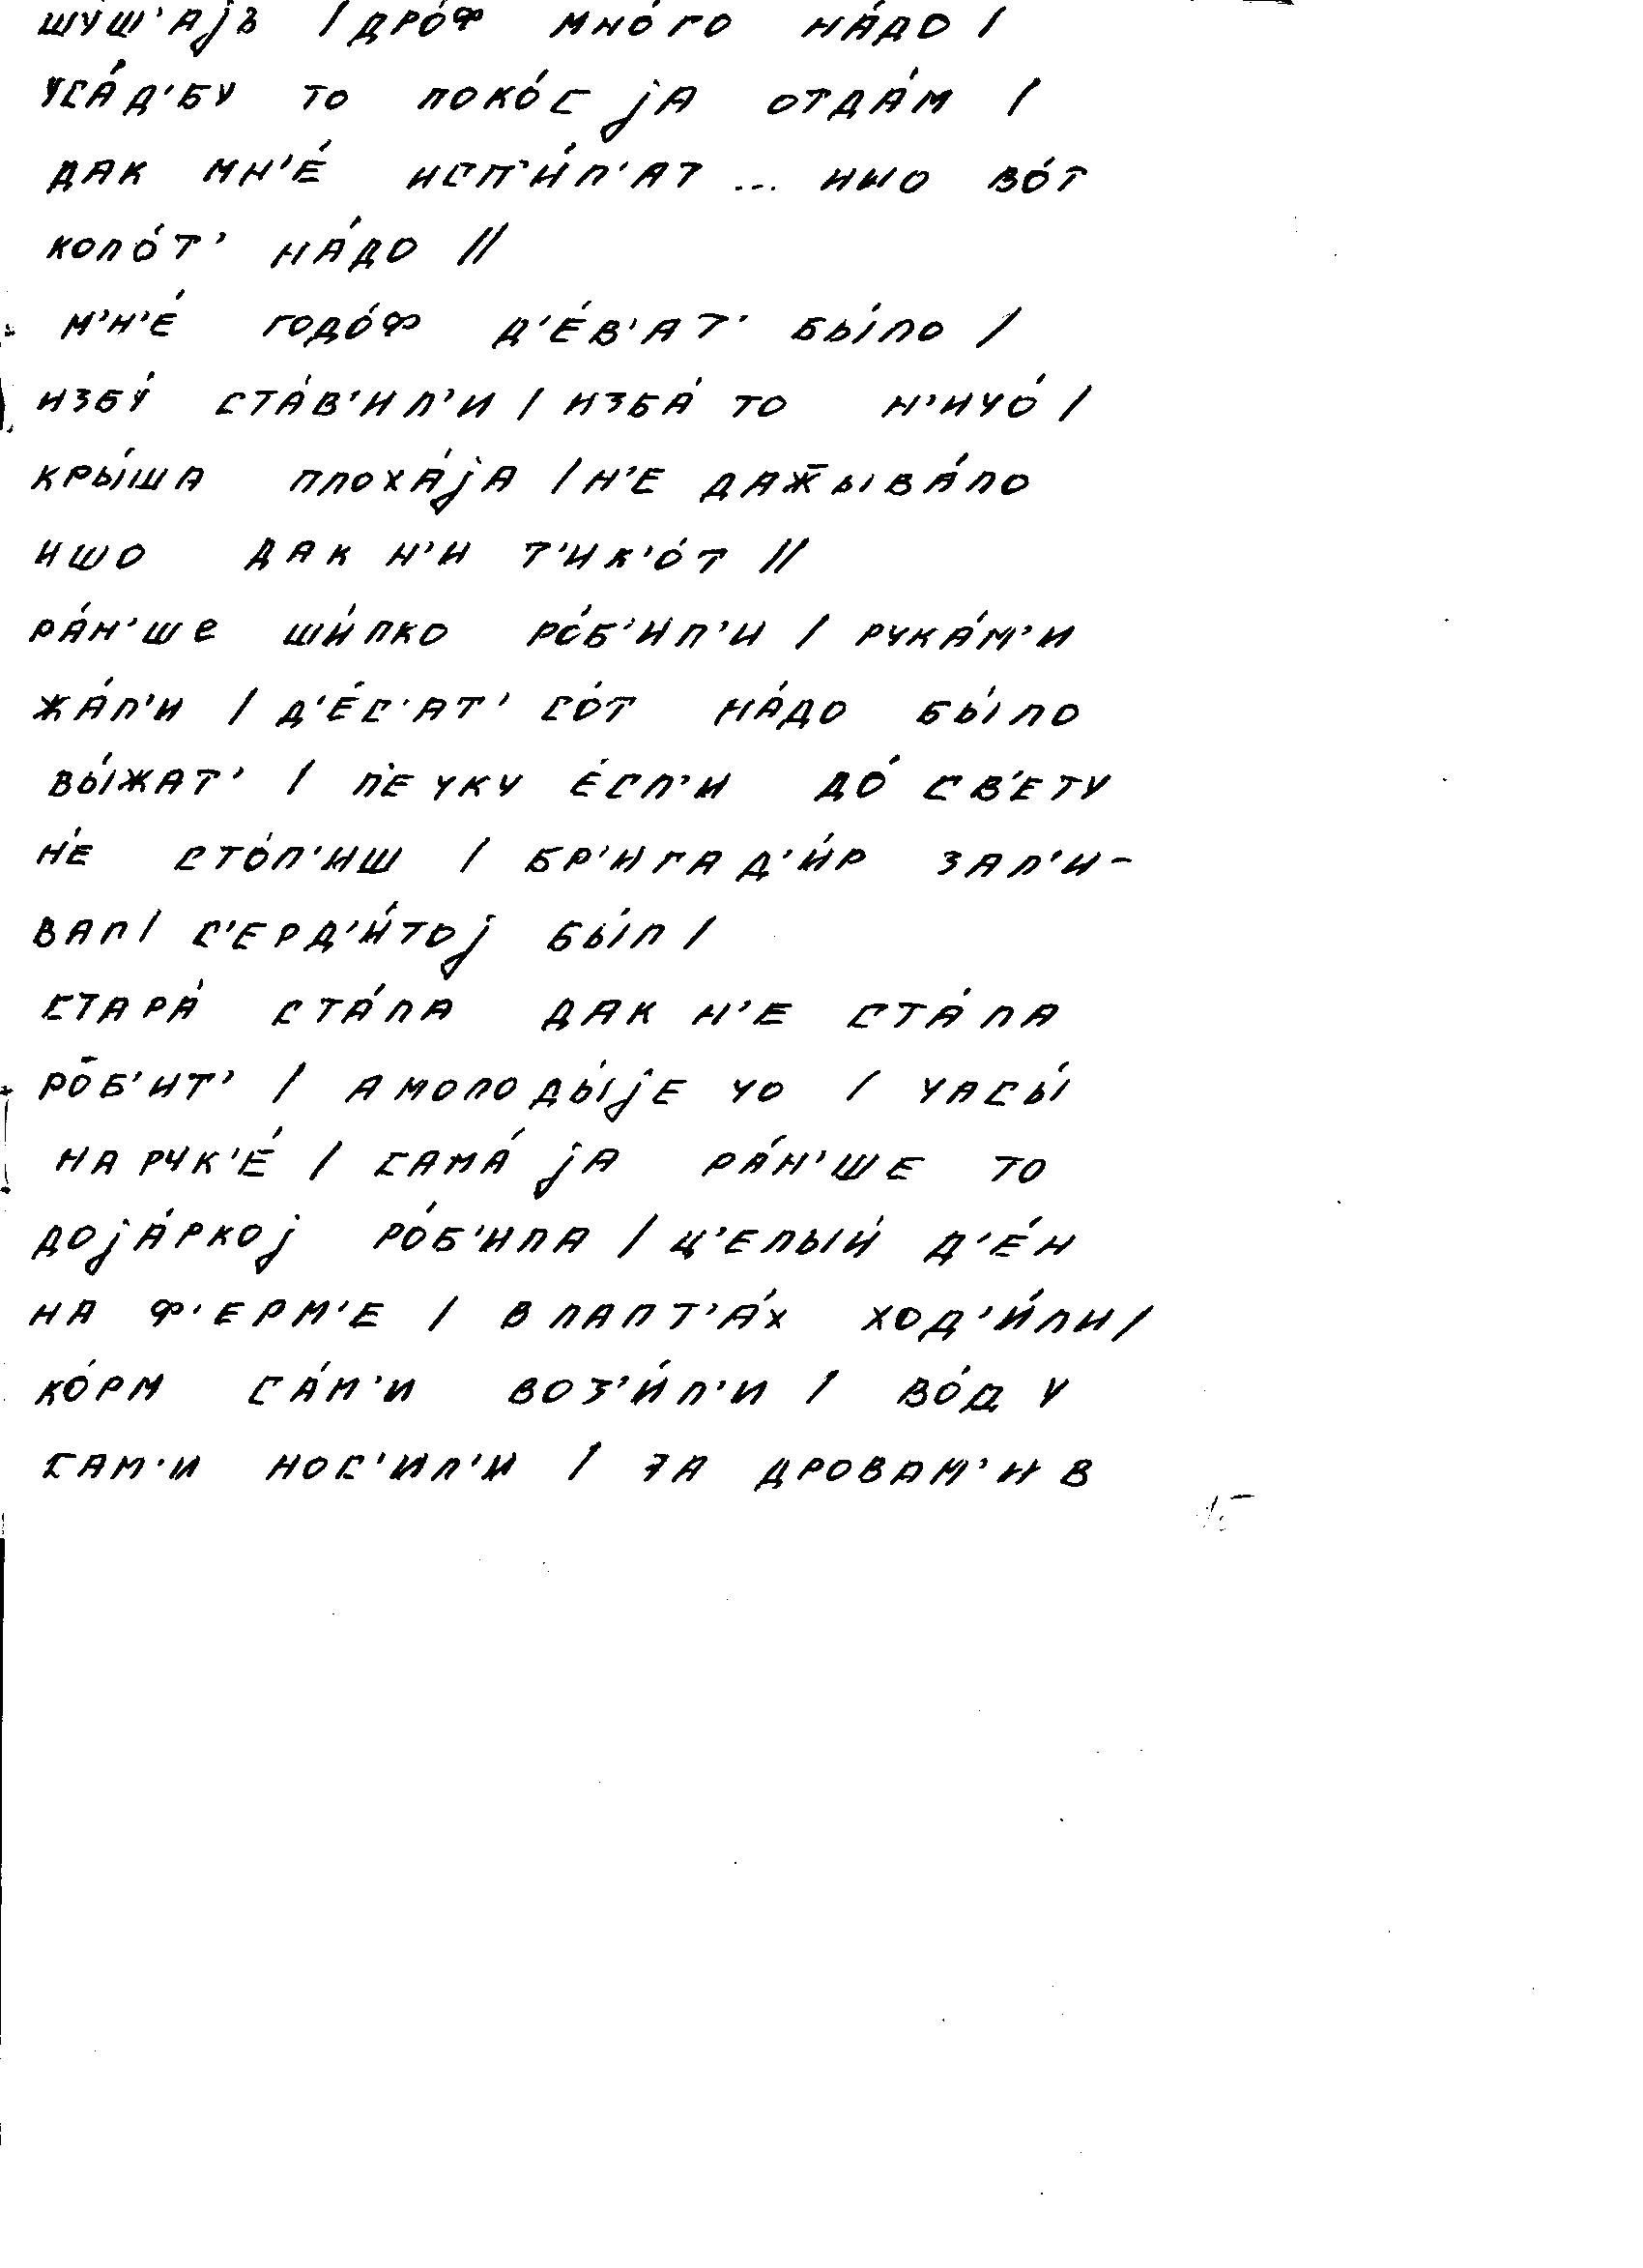 шу́ш'аjъ / дро́ф мно́го на́до /
уса́д'бу то поко́с jа отда́м /
дак мн'е́ исп'и́л'ат ... ишо во́т
коло́т' на́до //
м'н'е́ годо́ф д'е́в'ат' бы́ло /
избу́ ста́в'ил'и / изба́ то н'ичо́ /
кры́ша плоха́jа / н'е даж̄ыва́ло
ишо дак н'и т'ик'о́т //
ра́н'ше ши́пко ро́б'ил'и / рука́м'и
жа́л'и / д'е́с'ат' со́т на́до бы́ло
вы́жат' / п'ечку е́сл'и до́ св'ету
н'е сто́п'иш / бр'игад'и́р зал'и-
вал / с'ерд'и́тоj бы́л /
стара́ ста́ла дак н'е ста́ла
ро́б'ит' / а молоды́jе чо / часы́
на рук'е́ / сама́ jа ра́н'ше то
доjа́ркоj ро́б'ила / ц'елый д'е́н
на ф'ерм'е / в лапт'а́х ход'и́ли /
ко́рм са́м'и воз'и́л'и / во́ду
сам'и нос'ил'и / за дровам'и в